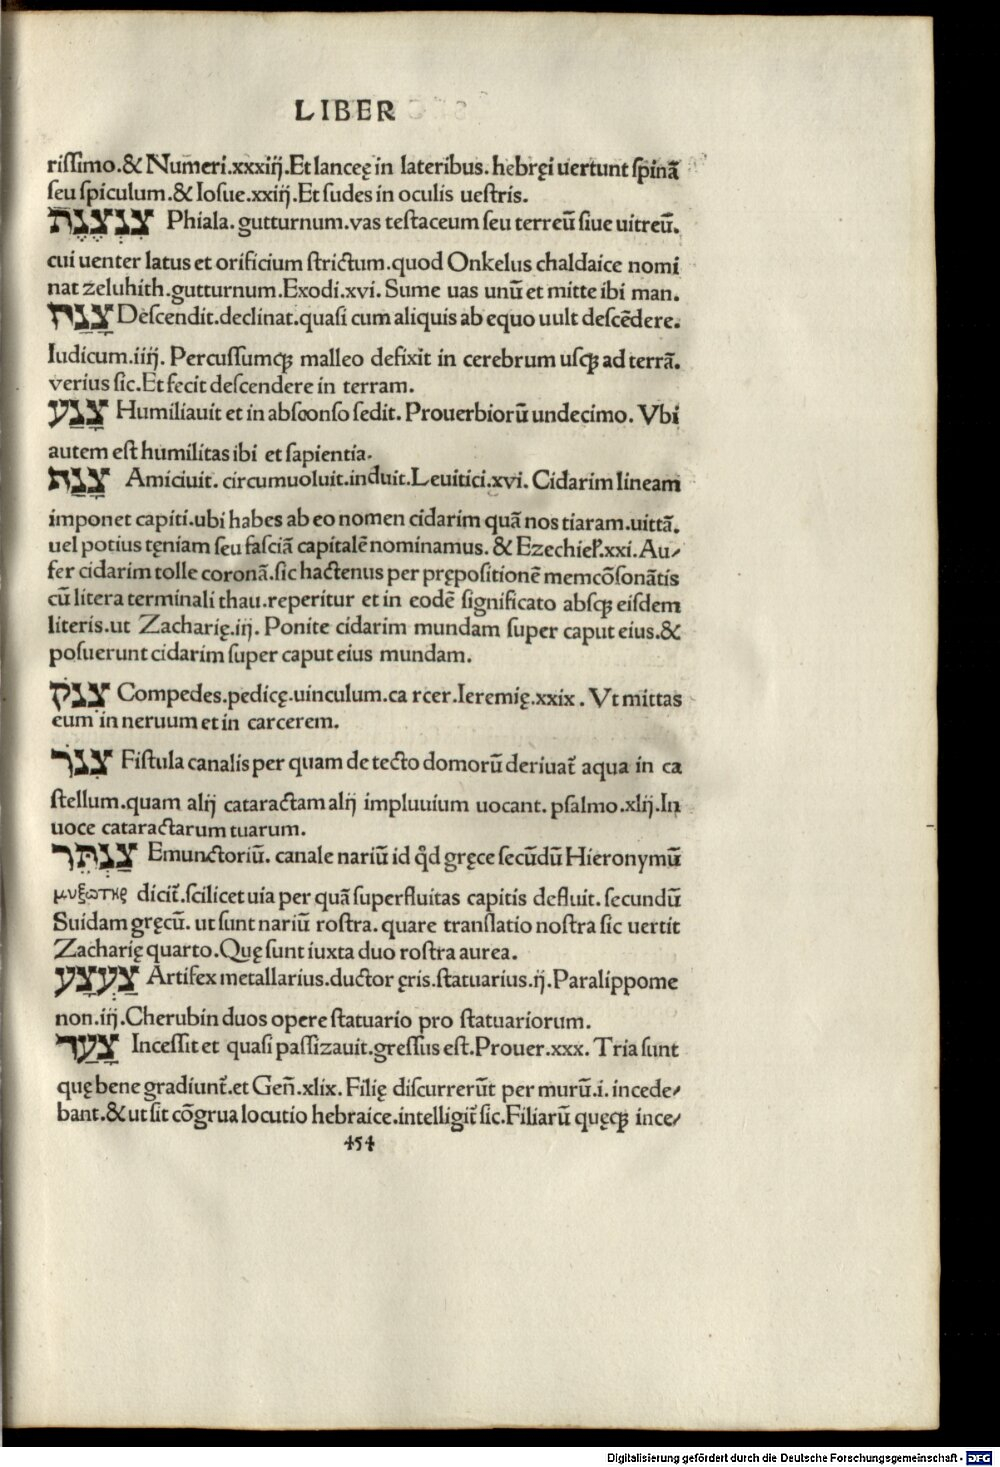 LIBER
rissimo.& Numeri.xxxiij.Et lanceę in lateribus.hebręi uertunt spinā
seu spiculum.& Iosue.xxiij.Et sudes in oculis uestris.
צִנְצֶנֶת Phiala.gutturnum.vas testaceum seu terreū siue uitreū.
cui uenter latus et orificium strictum.quod Onkelus chaldaice nomi
nat zeluhith.gutturnum.Exodi.xvi. Sume uas unū et mitte ibi man.
צָנַח Descendit.declinat.quasi cum aliquis ab equo uult descēdere.
Iudicum.iiij. Percussumqꝫ malleo defixit in cerebrum usqꝫ ad terrā.
verius sic.Et fecit descendere in terram.
צָנַע Humiliauit et in absconso sedit. Prouerbiorū undecimo. Vbi
autem est humilitas ibi et sapientia.
צָנַת Amiciuit. circumuoluit.induit.Leuitici.xvi. Cidarim lineam
imponet capiti.ubi habes ab eo nomen cidarim quā nos tiaram.uittā.
uel potius tęniam seu fasciā capitalē nominamus. & Ezechiel.xxi.Au⸗
fer cidarim tolle coronā.sic hactenus per prępositionē mem cōsonātis
cū litera terminali thau.reperitur et in eodē significato absqꝫ eisdem
literis.ut Zacharię.iij. Ponite cidarim mundam super caput eius.&
posuerunt cidarim super caput eius mundam.
צִנֹק Compedes.pedicę.uinculum.ca rcer.Ieremię.xxix. Vt mittas
eum in neruum et in carcerem.
צִנֹר Fistula canalis per quam de tecto domorū deriuat̄ aqua in ca
stellum.quam alij cataractam alij impluuium uocant. psalmo.xlij.In
uoce cataractarum tuarum.
צַנְתֵּר Emunctoriū. canale nariū id qd̄ gręce secūdū Hieronymū
μυξωτηρ dicit̄.scilicet uia per quā superfluitas capitis defluit. secundū
Suidam gręcū. ut sunt nariū rostra. quare translatio nostra sic uertit
Zacharię quarto.Quę sunt iuxta duo rostra aurea.
צַעְצֻע Artifex metallarius.ductor ęris.statuarius.ij.Paralippome
non.iij.Cherubin duos opere statuario pro statuariorum.
צָעַד Incessit et quasi passizauit.gressus est.Prouer.xxx. Tria sunt
quę bene gradiunt̄.et Geñ.xlix. Filię discurrerūt per murū.i. incede⸗
bant.& ut sit cōgrua locutio hebraice.intelligit̄ sic.Filiarū quęqꝫ ince⸗
454
Digitalisierung gefördert durch die Deutsche Forschungsgemeinschaft - DFG